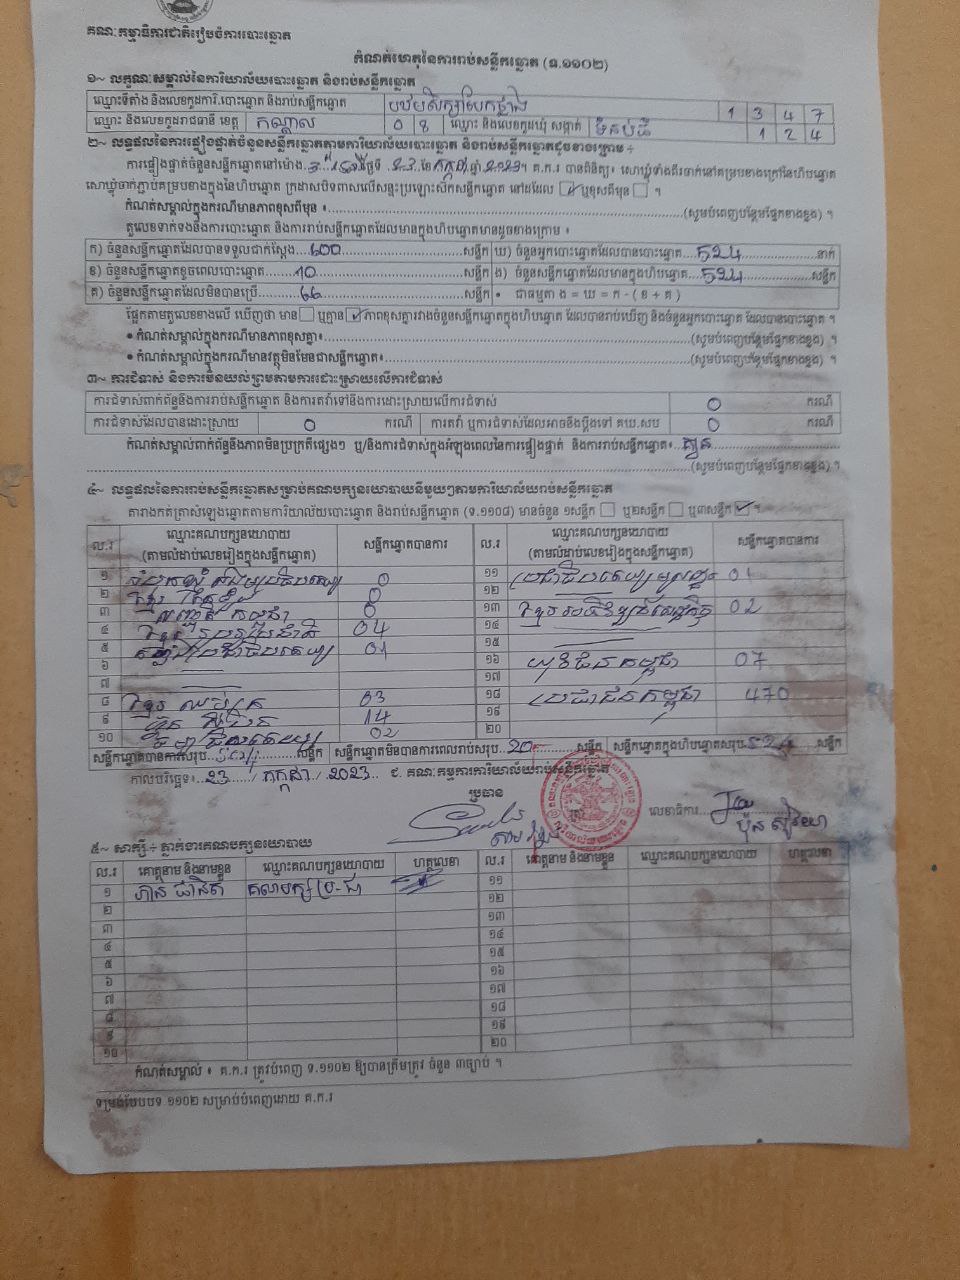 គណៈកម្មាធិការជាតិរៀបចំការបោះឆ្នោត
កំណត់ហេតុនៃការរាប់សន្លឹកឆ្នោត (ទ.១១០២)
១~ លក្ខណៈសម្គាល់នៃការិយាល័យបោះឆ្នោត និងរាប់សន្លឹកឆ្នោត
ឈ្មោះទីតាំង និងលេខកូដការិ.បោះឆ្នោត និងរាប់សន្លឹកឆ្នោត 1 3 4 7
ឈ្មោះ និងលេខកូដរាជធានី ខេត្ត កណ្តាល 0 8 ឈ្មោះ និងលេខកូដឃុំ សង្កាត់ 1 2 4
២~ លទ្ធផលនៃការផ្ទៀងផ្ទាត់ចំនួនសន្លឹកឆ្នោតតាមការិយាល័យបោះឆ្នោត និងរាប់សន្លឹកឆ្នោតដូចខាងក្រោម ÷
ការផ្ទៀងផ្ទាត់ចំនួនសន្លឹកឆ្នោតនៅម៉ោង ថ្ងៃទី 23 ខែ កក្កដា ឆ្នាំ 2023។ គ.ក.រ បានពិនិត្យ៖ សោឃ្នុំទាំងពីរចាក់នៅគម្របខាងក្រៅនៃហិបឆ្នោត
សោឃ្នុំចាក់ភ្ជាប់គម្របខាងក្នុងនៃហិបឆ្នោត ក្រដាសបិទពាសលើសន្ទះប្រឡោះសឹកសន្លឹកឆ្នោត នៅដដែល ឬខុសពីមុន ។
កំណត់សម្គាល់ក្នុងករណីមានភាពខុសពីមុន ៖ (សូមបំពេញបន្ថែមផ្នែកខាងខ្នង) ។
តួលេខទាក់ទងនឹងការបោះឆ្នោត និងរាប់សន្លឹកឆ្នោតដែលមានក្នុងហិបឆ្នោតមានដូចខាងក្រោម ៖
ក) ចំនួនសន្លឹកឆ្នោតដែលបានទទួលជាក់ស្តែង 600 សន្លឹក ឃ) ចំនួនអ្នកបោះឆ្នោតដែលបានបោះឆ្នោត 524 នាក់
ខ) ចំនួនសន្លឹកឆ្នោតខូចពេលបោះឆ្នោត 10 សន្លឹក ង) ចំនួនសន្លឹកឆ្នោតដែលមានក្នុងហិបឆ្នោត 524 សន្លឹក
គ) ចំនួនសន្លឹកឆ្នោតដែលមិនបានប្រើ 66 សន្លឹក • ជាធម្មតា ង = ឃ = ក - ( ខ + គ )
ផ្អែកតាមតួលេខខាងលើ ឃើញថា មាន ឬគ្មាន ✓ ភាពខុសគ្នារវាងចំនួនសន្លឹកឆ្នោតក្នុងហិបឆ្នោត ដែលបានរាប់ឃើញ និងចំនួនអ្នកបោះឆ្នោត ដែលបានបោះឆ្នោត ។
• កំណត់សម្គាល់ក្នុងករណីមានភាពខុសគ្នា៖ (សូមបំពេញបន្ថែមផ្នែកខាងខ្នង) ។
• កំណត់សម្គាល់ក្នុងករណីមានវត្ថុមិនមែនជាសន្លឹកឆ្នោត៖ (សូមបំពេញបន្ថែមផ្នែកខាងខ្នង) ។
៣~ ការជំទាស់ និងការមិនយល់ព្រមតាមការដោះស្រាយលើការជំទាស់
ការជំទាស់ពាក់ព័ន្ធនឹងការរាប់សន្លឹកឆ្នោត និងការតវ៉ាទៅនឹងការដោះស្រាយលើការជំទាស់ 0 ករណី
ការជំទាស់ដែលបានដោះស្រាយ 0 ករណី ការតវ៉ា ឬការជំទាស់ ដែលអាចនឹងប្តឹងទៅ គឃ.សប 0 ករណី
កំណត់សម្គាល់ពាក់ព័ន្ធនឹងភាពមិនប្រក្រតីផ្សេងៗ ឬ/និងការជំទាស់ក្នុងអំឡុងពេលនៃការផ្ទៀងផ្ទាត់ និងការរាប់សន្លឹកឆ្នោត៖ គ្មាន
(សូមបំពេញបន្ថែមផ្នែកខាងខ្នង) ។
៤~ លទ្ធផលនៃការរាប់សន្លឹកឆ្នោតសម្រាប់គណបក្សនយោបាយនីមួយៗតាមការិយាល័យរាប់សន្លឹកឆ្នោត
តារាងកត់ត្រាសំឡេងឆ្នោតតាមការិយាល័យបោះឆ្នោត និងរាប់សន្លឹកឆ្នោត (ទ.១១០៨) មានចំនួន ១សន្លឹក ឬ២សន្លឹក ឬ៣សន្លឹក ✓ ។
ល.រ ឈ្មោះគណបក្សនយោបាយ (តាមលំដាប់លេខរៀងក្នុងសន្លឹកឆ្នោត) សន្លឹកឆ្នោតបានការ ល.រ ឈ្មោះគណបក្សនយោបាយ (តាមលំដាប់លេខរៀងក្នុងសន្លឹកឆ្នោត) សន្លឹកឆ្នោតបានការ
១ 0 ១១ 01
២ 0 ១២
៣ កម្ពុជា 0 ១៣ 02
៤ ខ្មែរ 04 ១៤
៥ ប្រជាធិបតេយ្យ 01 ១៥
៦ ១៦ យុវជនកម្ពុជា 07
៧ ១៧
៨ ខ្មែរ ឈប់ក្រ 03 ១៨ ប្រជាជនកម្ពុជា 470
៩ 14 ១៩
១០ 02 ២០
សន្លឹកឆ្នោតបានការសរុប សន្លឹក សន្លឹកឆ្នោតមិនបានការពេលរាប់សរុប 20 សន្លឹក សន្លឹកឆ្នោតក្នុងហិបឆ្នោតសរុប 524 សន្លឹក
កាលបរិច្ឆេទ៖ 23 / កក្កដា / 2023 ជ. គណៈកម្មការការិយាល័យរាប់សន្លឹកឆ្នោត
ប្រធាន
លេខាធិការ
៥~ សាក្សី ÷ ភ្នាក់ងារគណបក្សនយោបាយ
ល.រ គោត្តនាម និងនាមខ្លួន ឈ្មោះគណបក្សនយោបាយ ហត្ថលេខា ល.រ គោត្តនាម និងនាមខ្លួន ឈ្មោះគណបក្សនយោបាយ ហត្ថលេខា
១ គណបក្ស ប្រ.ជា ១១
២ ១២
៣ ១៣
៤ ១៤
៥ ១៥
៦ ១៦
៧ ១៧
៨ ១៨
៩ ១៩
១០ ២០
កំណត់សម្គាល់ ៖ គ.ក.រ ត្រូវបំពេញ ទ.១១០២ ឱ្យបានត្រឹមត្រូវ ចំនួន ៣ច្បាប់ ។
ទម្រង់បែបបទ ១១០២ សម្រាប់បំពេញដោយ គ.ក.រ